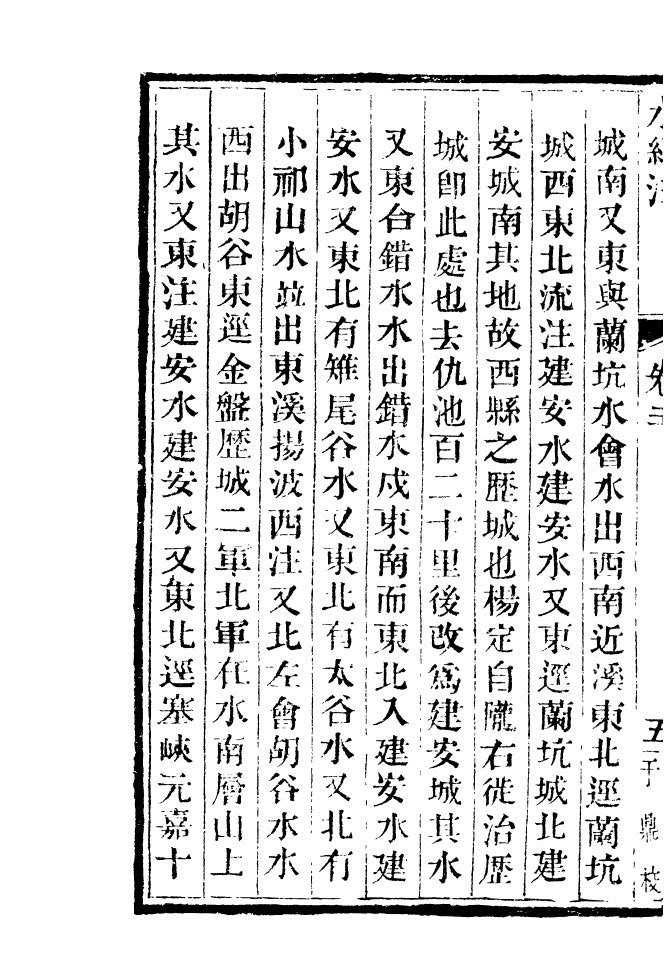 水經注 卷二 五 王鼎校
城南又東與蘭坑水會水出西南近溪東北逕蘭坑
城西東北流注建安水建安水又東逕蘭坑城北建
安城南其地故西縣之歷城也楊定自隴右徙治歷
城卽此處也去仇池百二十里後改爲建安城其水
又東合錯水水出錯水戍東南而東北入建安水建
安水又東北有雉尾谷水又東北有太谷水又北有
小祁山水並出東溪揚波西注又北左會胡谷水水
西出胡谷東逕金盤歷城二軍北軍在水南層山上
其水又東注建安水建安水又東北逕塞峽元嘉十